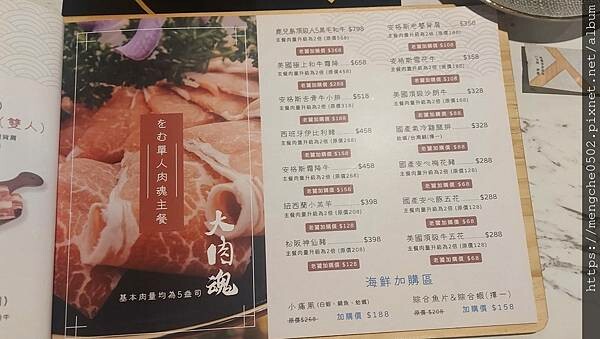 (雙人)
をむ單人肉魂主餐
大肉魂
基本肉量均為5盎司
鹿兒島頂級A5黑毛和牛 $798
主餐肉量升級為2倍 (原價568)
老饕加購價 $368
美國極上和牛霜降 $658
主餐肉量升級為2倍 (原價458)
老饕加購價 $268
安格斯去骨牛小排 $518
主餐肉量升級為2倍 (原價318)
老饕加購價 $188
西班牙伊比利豬 $458
主餐肉量升級為2倍 (原價268)
安格斯霜降牛 $458
主餐肉量升級為2倍 (原價268)
老饕加購價 $158
紐西蘭小羔羊 $398
主餐肉量升級為2倍 (原價208)
老饕加購價 $128
松阪神仙豬 $398
主餐肉量升級為2倍 (原價208)
老饕加購價 $128
$358
老饕加購價 $108
安格斯雪花牛 $358
老饕加購價 $108
美國頂級沙朗牛 $328
主餐肉量升級為2倍 (原價168)
老饕加購價 $88
國產氣冷雞腿排 $328
老饕加購價 $88
國產安心梅花豬 $288
主餐肉量升級為2倍 (原價128)
老饕加購價 $68
國產安心豚五花 $288
主餐肉量升級為2倍 (原價128)
老饕加購價 $68
美國頂級牛五花 $288
主餐肉量升級為2倍 (原價128)
老饕加購價 $68
海鮮加購區
小痛風 (白蝦、鯛魚、蛤蠣)
原價$268 加購價 $188
綜合魚片&綜合蝦(擇一)
原價$208 加購價 $158
https://mengche0502.pixnet.net/album